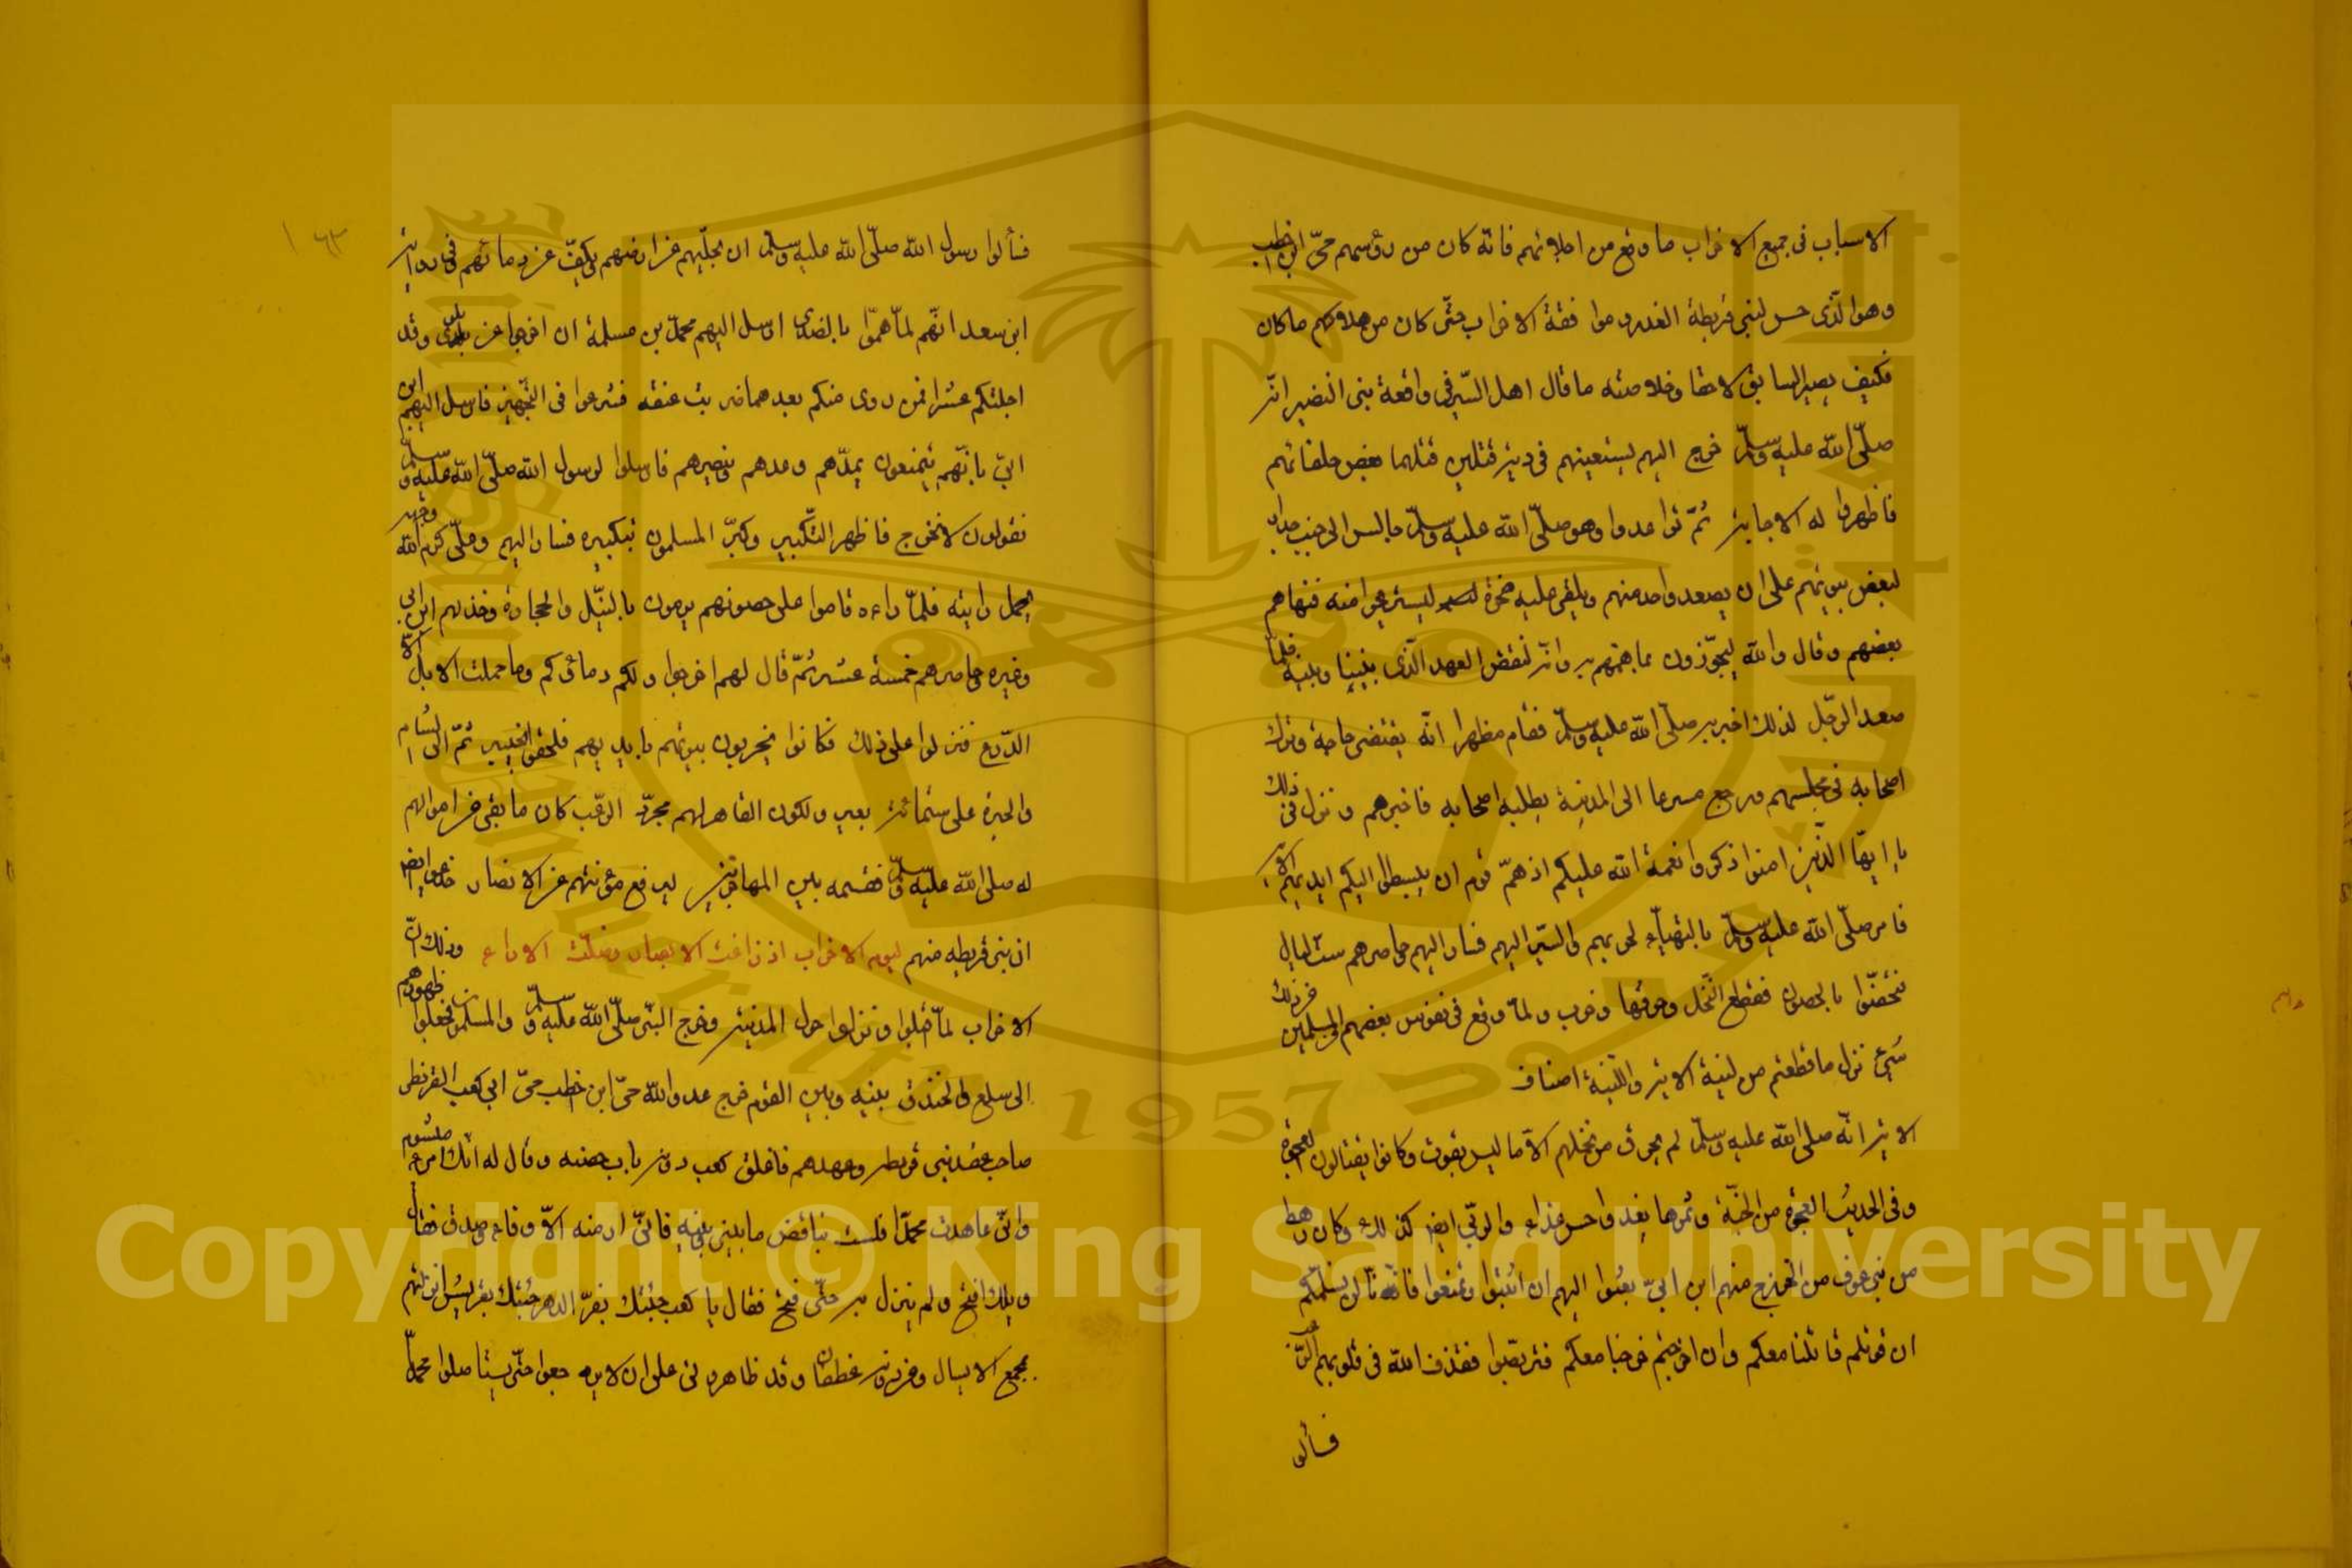 الاسباب فى جميع الاحزاب ما وقع من اجلائهم فانه كان من رؤسهم حيّ ابن اخطب
وهو الذى حسن لبنى قريظة الغدر وموا فقة الاحزاب حتّى كان من هلاكهم ما كان
فكيف يصير السابق لاحقا وخلاصته ما قال اهل السّير فى واقعة بنى النضير انّه
صلّى الله عليه وسلّم خرج اليهم ليستعينهم فى دية قتلين قتلهما بعض حلفائهم
فاظهروا له الاجابة ثمّ تواعدوا وهو صلّى الله عليه وسلّم جالس الى جنب جدار
لبعض بيوتهم على ان يصعد واحد منهم ويلقى عليه صخرة ليستريحوا منه فنهاهم
بعضهم وقال والله ليخبرن بما هممتم به وانه لنقض العهد الّذى بيننا وبينه فلمّا
صعد الرّجل لذلك اخبر به صلّى الله عليه وسلّم فقام مظهرا انّه يقتضى حاجة وترك
اصحابه فى مجلسهم ورجع مسرعا الى المدينة يطلبه اصحابه فاخبرهم ونزل فى ذلك
يا ايّها الّذين امنوا اذكروا نعمة الله عليكم اذ همّ قوم ان يبسطوا اليكم ايديهم الآية
فامر صلّى الله عليه وسلّم بالتهيّاء لحربهم والسّير اليهم فسار اليهم حاصرهم ست ليال
فتحصّنوا بالحصون فقطع النّخل وحرقها وخرب ولمّا وقع فى نفوس بعضهم المسلمين من ذلك
شيئ نزل ما قطعتم من لينة الاية واللّينة اصناف
الاية انّه صلى الله عليه وسلّم لم يحرق من نخلهم الاّ ما ليس بقوت وكانوا يقتالون العجوة
وفى الحديث العجوة من الجنّة وثمرها يغذوا حسن غذاء والبرنّي ايضا كذلك وكان رهط
من بنى عوف من الخزرج منهم ابن ابيّ بعثوا اليهم ان اثبتوا وتمنعوا فانّا لن نسلمكم
ان قوتلتم قاتلنا معكم وان اخرجتم خرجنا معكم فتربّصوا فقذف الله فى قلوبهم الرّعب
فسألو
فسألوا رسول الله صلّى الله عليه وسلّم ان يجليهم عن ارضهم ويكفّ عن دمائهم وفى رواية
ابن سعد انّهم لمّا همّوا بالغدر ارسل اليهم محمّد بن مسلمة ان اخرجوا عن بلدى وقد
اجلتكم عشرا فمن روى منكم بعدها ضربت عنقه فشرعوا فى التّجهيز فارسل اليهم ابن
ابىّ بانّهم يتمنعون يمدّهم وعدهم بنصرهم فارسلوا لرسول الله صلّى الله عليه وسلّم
نقولون لا نخرج فاظهر التّكبير وكبّر المسلمون بتكبيره فسار اليهم وعلىّ كرم الله وجهه
يحمل رايته فلمّا راءه قاموا على حصونهم يرمون بالنبّل والحجارة وخذلهم ابن ابى
وغيره حاصرهم خمسة عشر ثمّ قال لهم اخرجوا ولكم دمائكم وما حملت الابل الاّ
الدّرع فنزلوا على ذلك فكانوا يخربون بيوتهم بايديهم فلحقوا بخيبر ثمّ الى الشام
والحيرة على ستمائة بعير ولكون القاهر لهم مجرّد الرّعب كان ما بقى من اموالهم
له صلى الله عليه وسلّم فقسمه بين المهاجرين ليرفع مؤنتهم عن الانصار
ان بنى قريظه منهم ليوم الاحزاب اذ زاغت الابصار وضلّت الاراء وذلك ان
الاحزاب لمّا اقبلوا ونزلوا حول المدينة وخرج النبّى صلّى الله عليه وسلّم والمسلمون فجعلوا ظهورهم
الى سلع والخندق بينه وبين القوم خرج عدو الله حىّ ابن اخطب حىّ ابى كعب القرظى
صاحب عقد بنى قريظة وعهدهم فاغلق كعب دونه باب حصنه وقال له انّك امرء مشئوم
وانّى عاهدت محمّدا فلست بناقض ما بينى وبينه فانّى لم ار منه الاّ وفاء وصدق فقال
ويلك افتح ولم يزل به حتّى فتح فقال يا كعب جئتك بعزّ الدهر جئتك بقريش انزلتهم
بمجمع الاسيال ومن دونه غطفان وقد ظاهرونى على ان لا يرجعوا حتّى يستاصلوا محمّدا
Copyright © King Saud University
1957